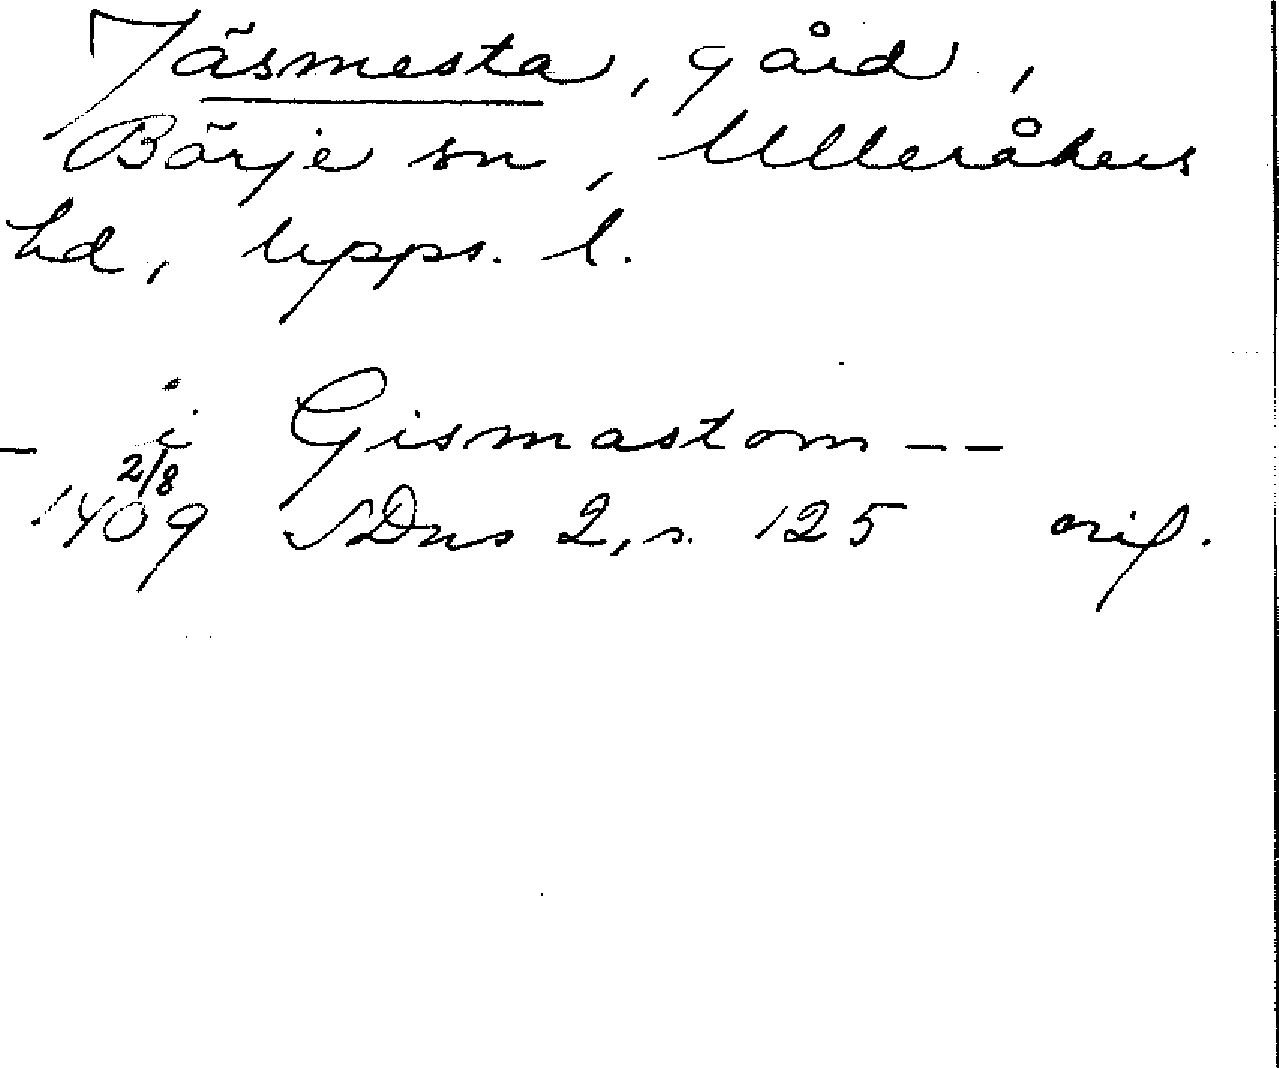 Jäsmesta, gård,
Börje sn, Ulleråkers
hd, Upps. l.
- i Gismastom --
2/8
1409 SDns 2, s. 125 orig.